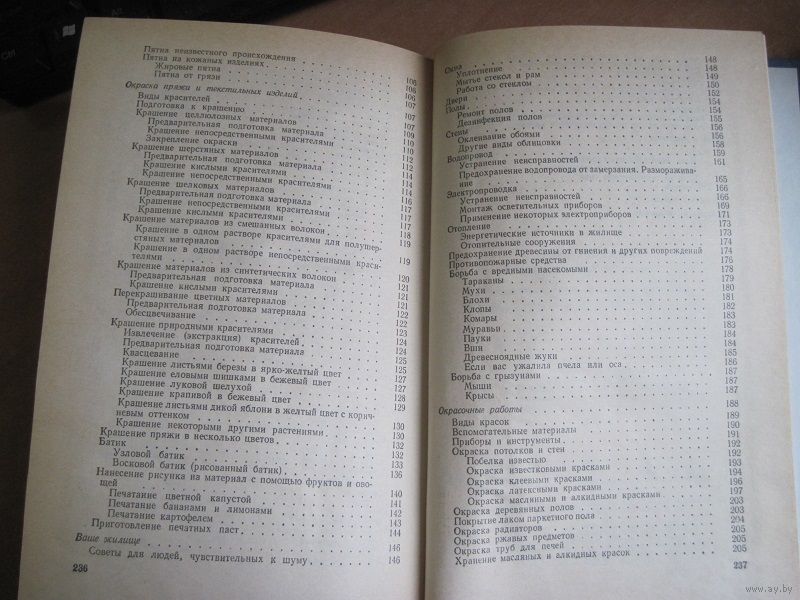 Ctrl
Пятна неизвестного происхождения
Пятна на кожаных изделиях
Жировые пятна 106
Пятна от грязи 106
Окраска пряжи и текстильных изделий 106
Виды красителей 107
Подготовка к крашению
Крашение целлюлозных материалов 107
Предварительная подготовка материала 109
Крашение непосредственными красителями 110
Закрепление окраски 110
Крашение шерстяных материалов 112
Предварительная подготовка материала 112
Крашение кислыми красителями 114
Крашение непосредственными красителями 114
Крашение шелковых материалов 116
Предварительная подготовка материала 116
Крашение непосредственными красителями 117
Крашение кислыми красителями 117
Крашение материалов из смешанных волокон 118
Крашение в одном растворе красителями для полушер- 119
стяных материалов
Крашение в одном растворе непосредственными краси- 119
телями
Крашение материалов из синтетических волокон 120
Предварительная подготовка материала 121
Крашение кислыми красителями 121
Перекрашивание цветных материалов 121
Предварительная подготовка материала 122
Обесцвечивание 122
Крашение природными красителями 123
Извлечение (экстракция) красителей 124
Предварительная подготовка материала 124
Квасцевание 125
Крашение листьями березы в ярко-желтый цвет 127
Крашение еловыми шишками в бежевый цвет 127
Крашение луковой шелухой 128
Крашение крапивой в бежевый цвет 129
Крашение листьями дикой яблони в желтый цвет с корич-
невым оттенком 130
Крашение некоторыми другими растениями 130
Крашение пряжи в несколько цветов 132
Батик 132
Узловой батик 133
Восковой батик (рисованный батик) 136
Нанесение рисунка на материал с помощью фруктов и ово-
щей 140
Печатание цветной капустой 141
Печатание бананами и лимонами 142
Печатание картофелем 143
Приготовление печатных паст 144
Ваше жилище 146
Советы для людей, чувствительных к шуму 146
236
Окна 148
Уплотнение 148
Мытье стекол и рам 149
Работа со стеклом 150
Двери 152
Полы 154
Ремонт полов 154
Дезинфекция полов 155
Стены 156
Оклеивание обоями 156
Другие виды облицовки 158
Водопровод 159
Устранение неисправностей 161
Предохранение водопровода от замерзания. Разморажива-
ние 165
Электропроводка 166
Устранение неисправностей 166
Монтаж осветительных приборов 169
Применение некоторых электроприборов 171
Отопление 173
Энергетические источники в жилище 173
Отопительные сооружения 174
Предохранение древесины от гниения и других повреждений 174
Противопожарные средства 176
Борьба с вредными насекомыми 178
Тараканы 179
Мухи 180
Блохи 181
Клопы 182
Комары 183
Муравьи 184
Пауки 184
Вши 184
Древесноядные жуки 185
Если вас ужалила пчела или оса 186
Борьба с грызунами 187
Мыши 187
Крысы 187
Окрасочные работы 188
Виды красок 189
Вспомогательные материалы 190
Приборы и инструменты 191
Окраска потолков и стен 192
Побелка известью 192
Окраска известковыми красками 193
Окраска клеевыми красками 194
Окраска латексными красками 196
Окраска масляными и алкидными красками 197
Окраска деревянных полов 203
Покрытие лаком паркетного пола 203
Окраска радиаторов 204
Окраска ржавых предметов 205
Окраска труб для печей 205
Хранение масляных и алкидных красок 205
237
www.ay.by